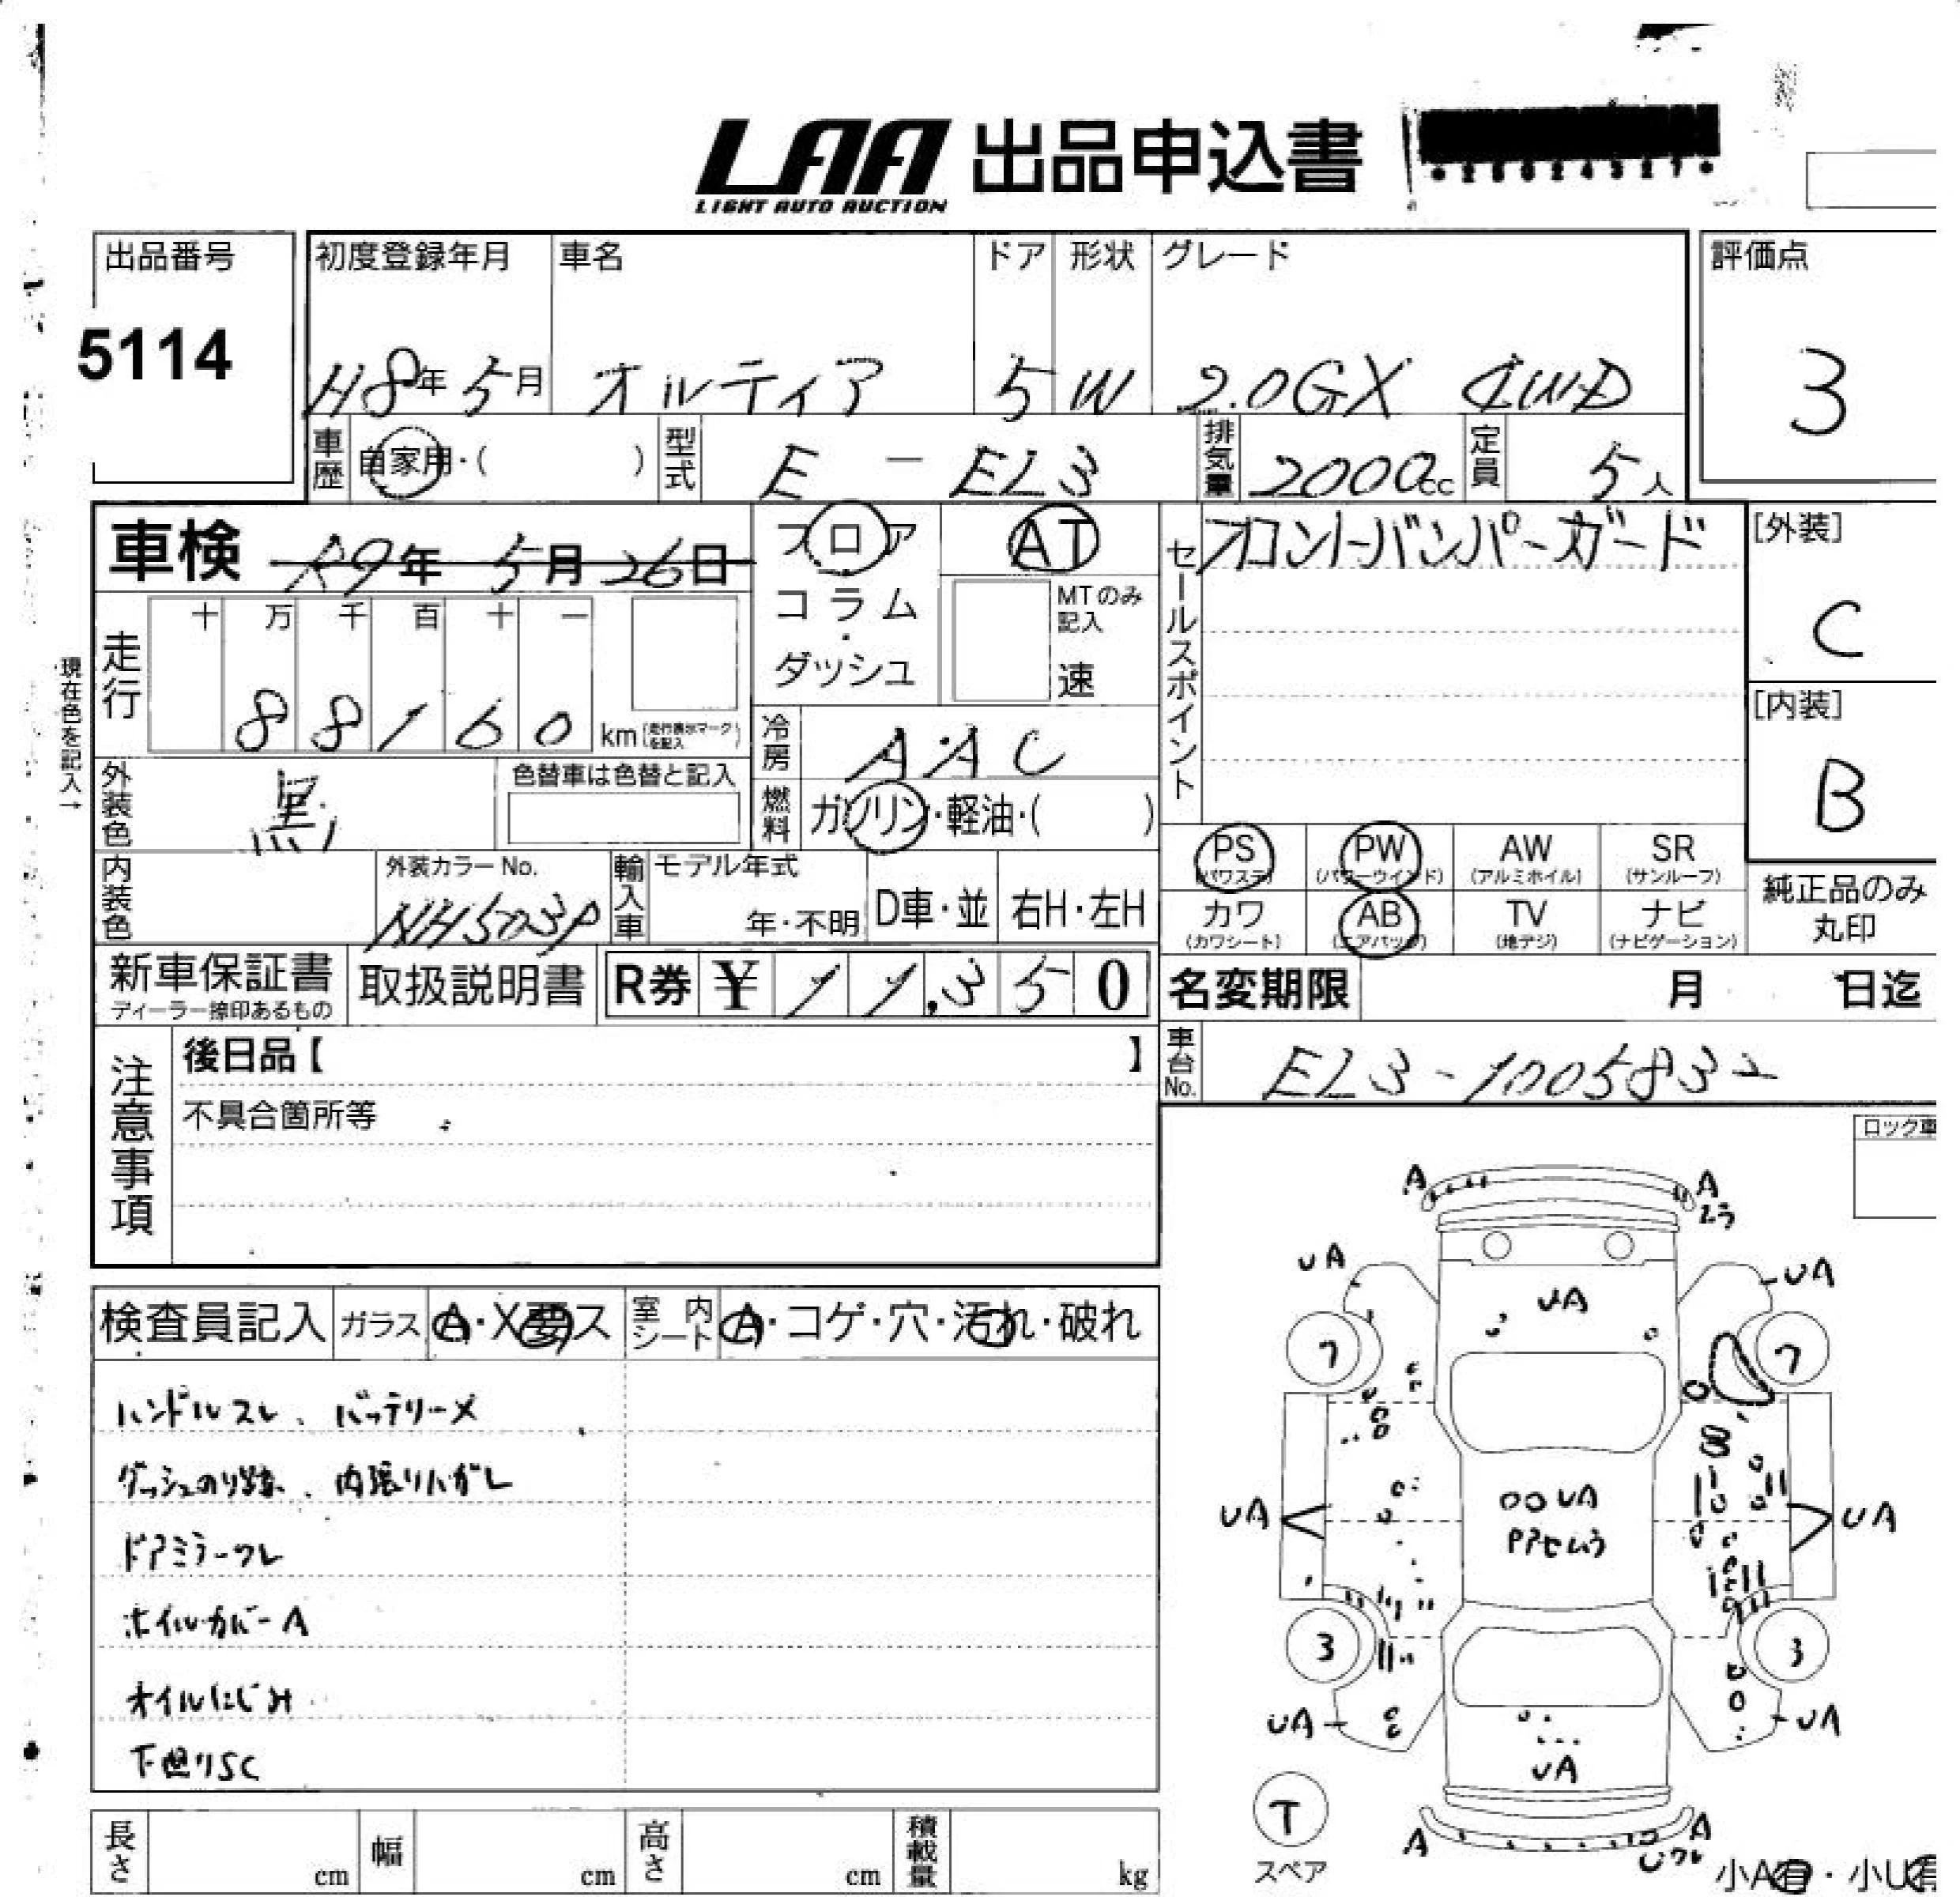 LAA 出品申込書
LIGHT AUTO AUCTION
出品番号
5114
初度登録年月
H8年5月
車名
オルティア
ドア
5
形状
W
グレード
2.0GX 4WD
評価点
3
車歴
自家用・( )
型式
E - EL3
排気量
2000cc
定員
5人
車検 R9年 5月 26日
フロア
コラム
・
ダッシュ
AT
MTのみ
記入
速
セールスポイント
フロントバンパーガード
[外装]
C
[内装]
B
現在色を記入→
走行
十 万 千 百 十 一
8 8 1 6 0 km
(走行表示マークを記入)
冷房
A・A C
外装色
黒
色替車は色替と記入
燃料
ガソリン・軽油・( )
PS
(パワステ)
PW
(パワーウインド)
AW
(アルミホイル)
SR
(サンルーフ)
カワ
(カワシート)
AB
(エアバッグ)
TV
(地デジ)
ナビ
(ナビゲーション)
純正品のみ
丸印
内装色
外装カラー No.
NH503P
輸入車
モデル年式
年・不明
D車・並
右H・左H
新車保証書
ディーラー捺印あるもの
取扱説明書
R券 ¥ 1 1,3 5 0
名変期限 月 日迄
注意事項
後日品【 】
不具合箇所等
車台No.
EL3-1005832
ロック車
検査員記入
ガラス
A・X要ス
室内シート
A・コゲ・穴・汚れ・破れ
ハンドルスレ、バッテリーメ
ダッシュのり跡、内張りハガレ
ドアミラーワレ
ホイルカバーA
オイルにじみ
下廻りSC
A
A
ムラ
UA
UA
UA
7
7
UA
UA
UA
3
3
UA
UA
UA
T
スペア
A
A
Uワレ
小A有・小U有
長さ cm
幅 cm
高さ cm
積載量 kg